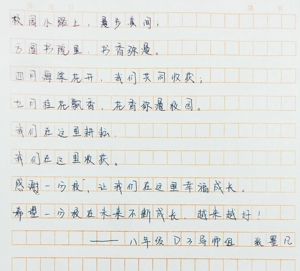 校园小路上,晨与夜间,
方圆书院里,书香弥漫。
四月海棠花开,我们共同收获;
七月桂花飘香,花香弥漫校园。
我们在这里耕耘
我们在这里收获。
感谢一一的校,让我们在这里幸福成长。
希望一一的校在未来不断成长,越来越好!
——八年级 D3导师组